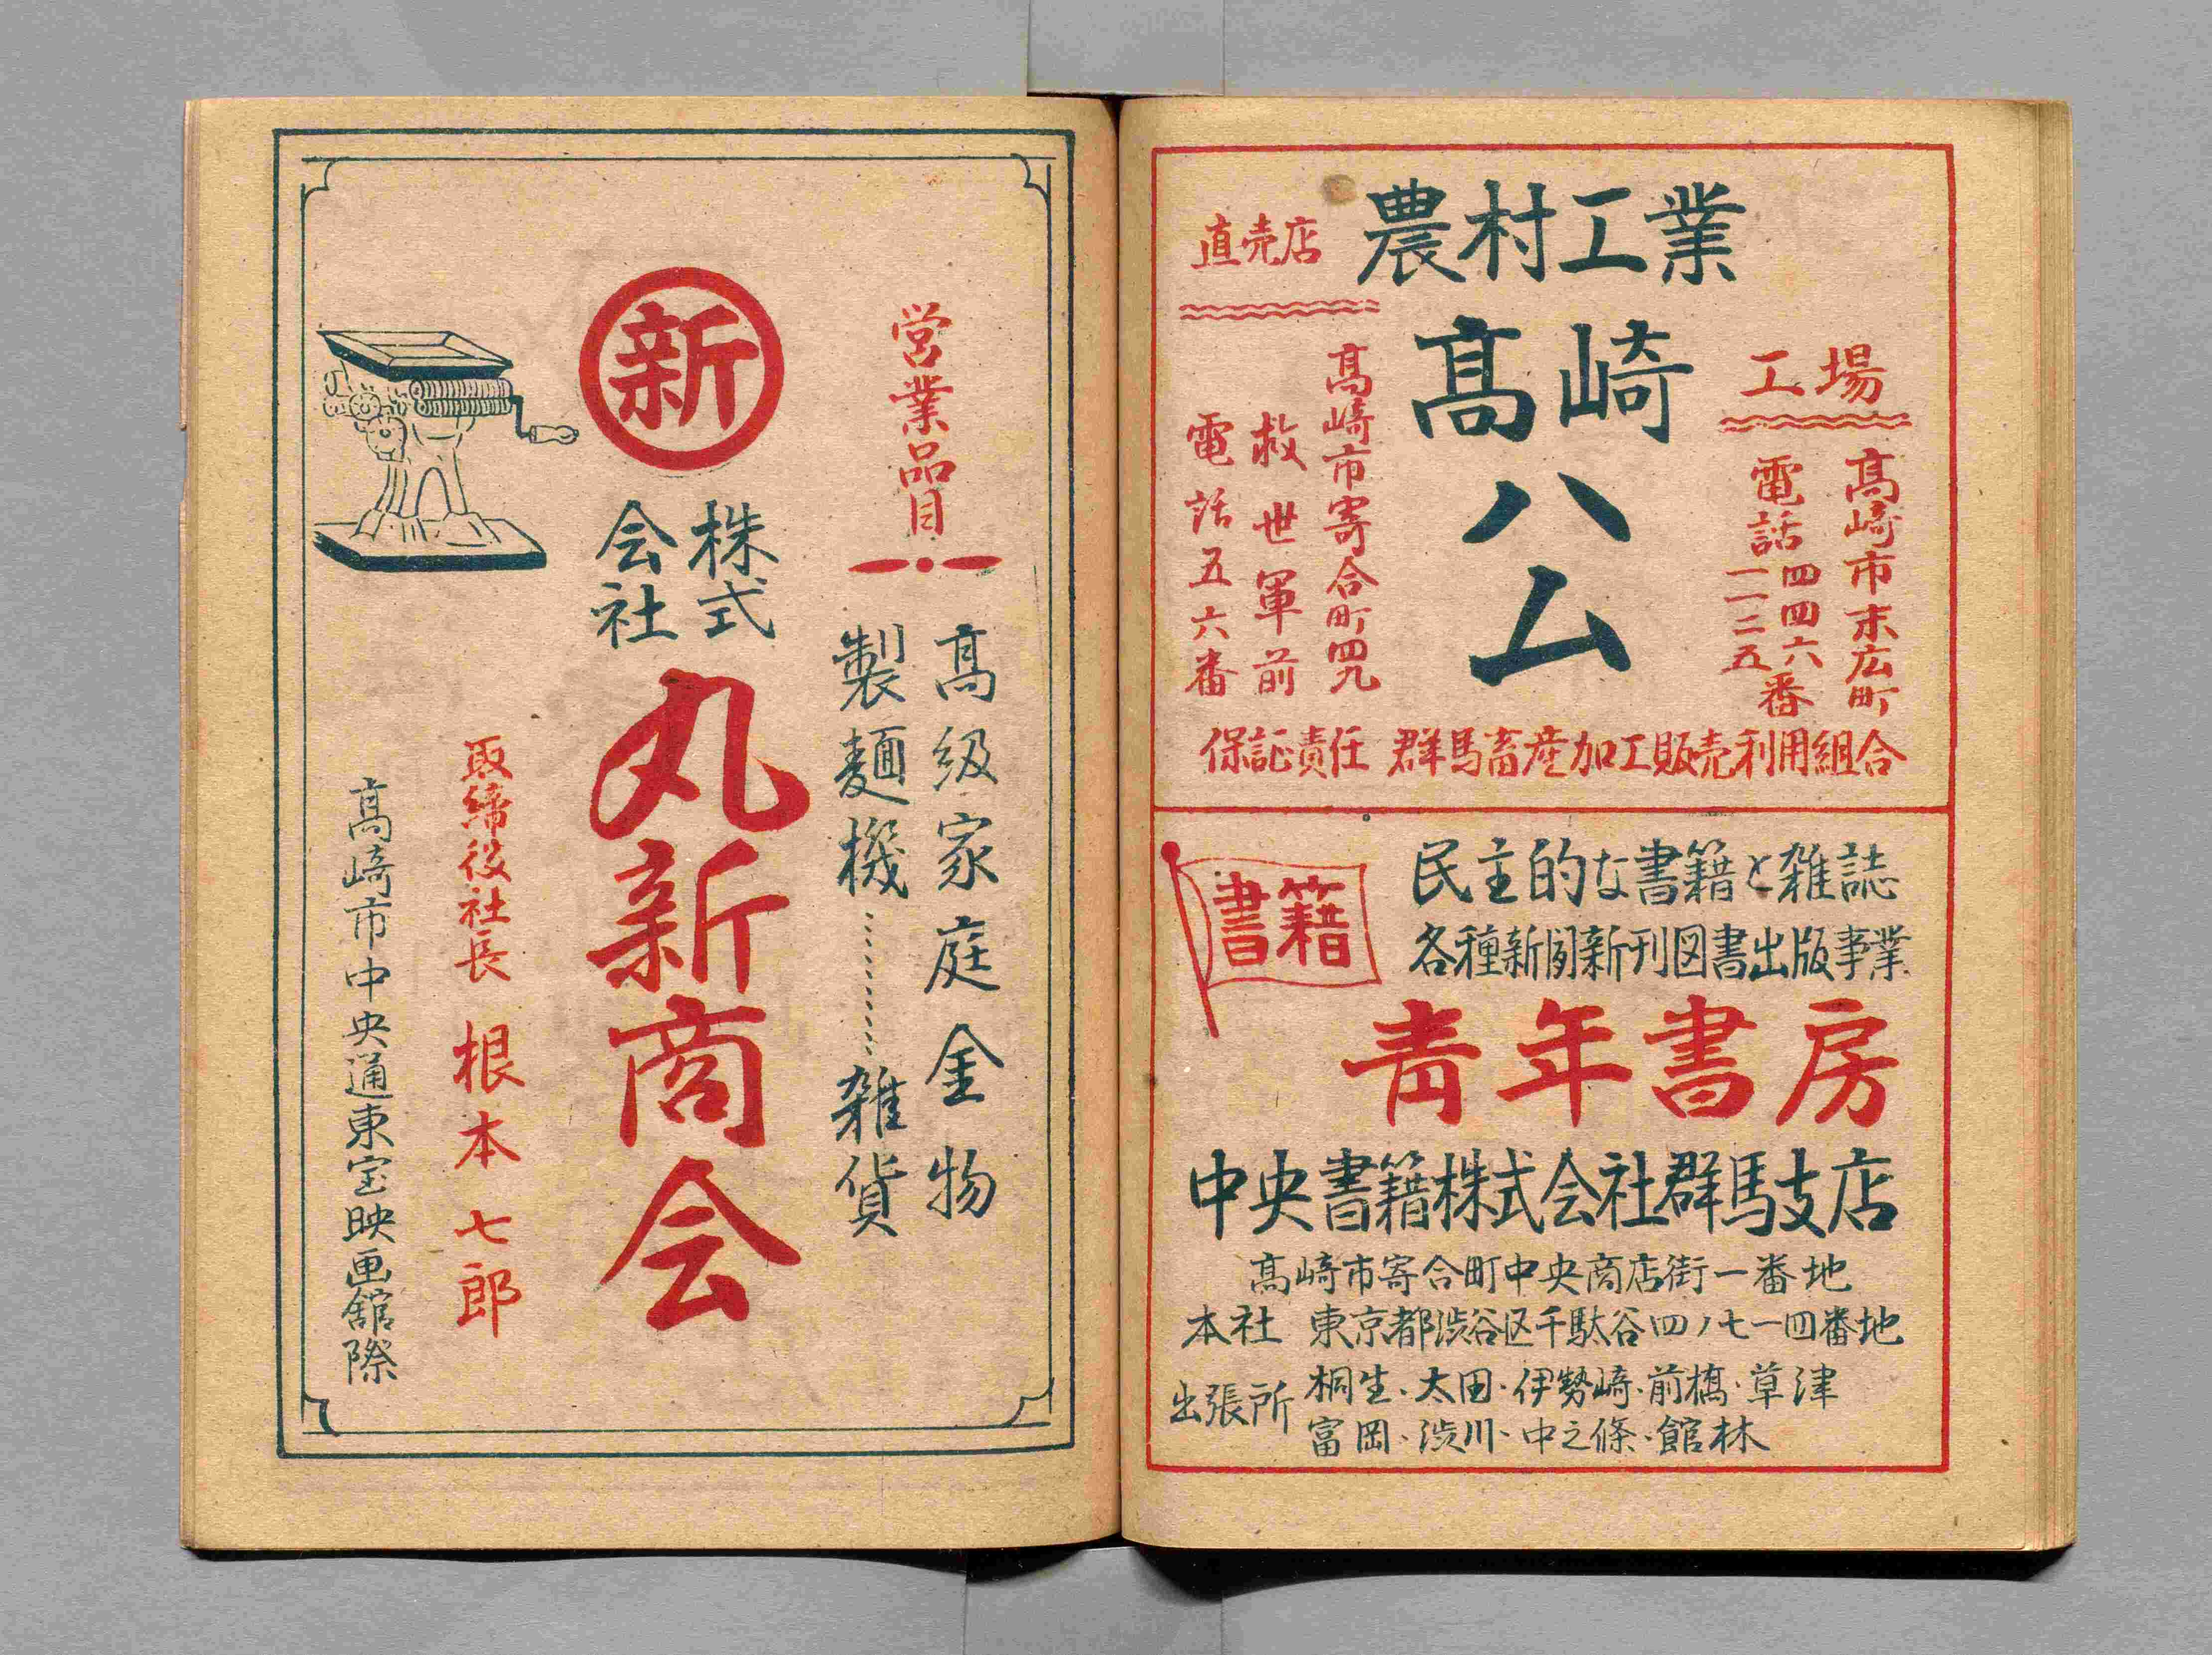 農村工業
高崎
ハム
工場
高崎市末広町
電話四四六番
一一三五
直売店
高崎市寄合町四九
救世軍前
電話五六番
保証責任 群馬畜産加工販売利用組合
書籍
民主的な書籍と雑誌
各種新聞新刊図書出版事業
青年書房
中央書籍株式会社群馬支店
高崎市寄合町中央商店街一番地
本社 東京都渋谷区千駄谷四ノ七一四番地
出張所 桐生・太田・伊勢崎・前橋・草津
富岡・渋川・中之條・館林
営業品目
高級家庭金物
製麺機………雑貨
新
株式会社
丸新商会
取締役社長 根本七郎
高崎市中央通東宝映画館際